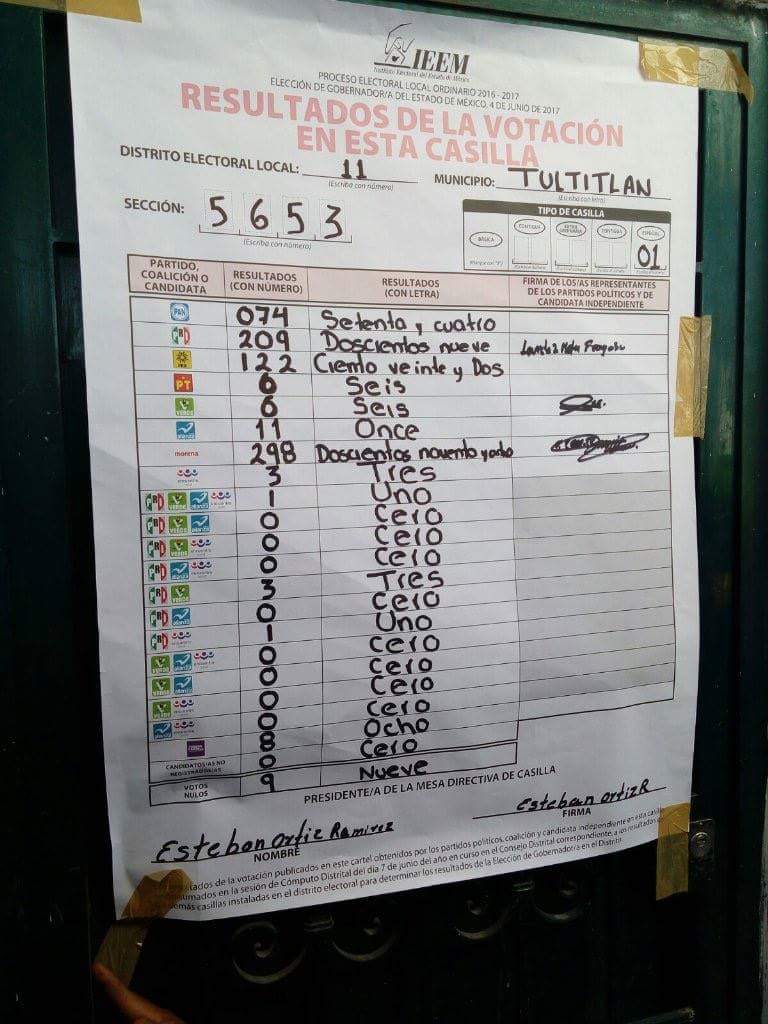 IEEM
Instituto Electoral del Estado de México
PROCESO ELECTORAL LOCAL ORDINARIO 2016 - 2017
ELECCIÓN DE GOBERNADOR/A DEL ESTADO DE MÉXICO, 4 DE JUNIO DE 2017
RESULTADOS DE LA VOTACIÓN
EN ESTA CASILLA
DISTRITO ELECTORAL LOCAL: 11 MUNICIPIO: TULTITLAN
(Escriba con número) (Escriba con letra)
SECCIÓN: 5653
(Escriba con número)
TIPO DE CASILLA
BÁSICA CONTIGUA ESPECIAL
01
PARTIDO, COALICIÓN O CANDIDATA RESULTADOS (CON NÚMERO) RESULTADOS (CON LETRA) FIRMA DE LOS/AS REPRESENTANTES DE LOS PARTIDOS POLÍTICOS Y DE CANDIDATA INDEPENDIENTE
PAN 074 Setenta y cuatro
PRD 209 Doscientos nueve
PRD 122 Ciento veinte y Dos
PT 6 Seis
VERDE 6 Seis
alianza 11 Once
morena 298 Doscientos noventa y ocho
encuentro social 3 Tres
PRI VERDE alianza encuentro social 1 Uno
PRI VERDE alianza 0 Cero
PRI VERDE encuentro social 0 Cero
PRI alianza encuentro social 0 Cero
PRI VERDE 3 Tres
PRI alianza 0 Cero
PRI encuentro social 1 Uno
VERDE alianza encuentro social 0 Cero
VERDE alianza 0 Cero
VERDE encuentro social 0 Cero
alianza encuentro social 0 Cero
8 Ocho
CANDIDATOS/AS NO REGISTRADOS/AS 0 Cero
VOTOS NULOS 9 Nueve
PRESIDENTE/A DE LA MESA DIRECTIVA DE CASILLA
Esteban Ortiz Ramirez Esteban Ortiz R
NOMBRE FIRMA
resultados de la votación publicados en este cartel obtenidos por los partidos políticos, coalición y candidata independiente en esta casilla
sumados en la sesión de Cómputo Distrital del día 7 de junio del año en curso en el Consejo Distrital correspondiente, a los resultados
demás casillas instaladas en el distrito electoral para determinar los resultados de la Elección de Gobernador/a en el Distrito.